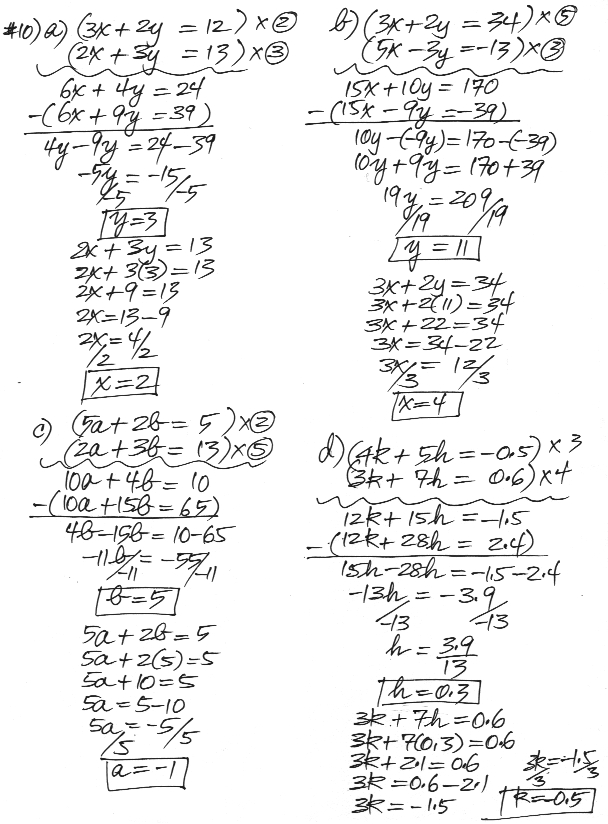 #10) a) (3x + 2y = 12) × ②
(2x + 3y = 13) × ③
6x + 4y = 24
-(6x + 9y = 39)
4y - 9y = 24 - 39
-5y/-5 = -15/-5
y = 3
2x + 3y = 13
2x + 3(3) = 13
2x + 9 = 13
2x = 13 - 9
2x/2 = 4/2
x = 2
b) (3x + 2y = 34) × ⑤
(5x - 3y = -13) × ③
15x + 10y = 170
-(15x - 9y = -39)
10y - (-9y) = 170 - (-39)
10y + 9y = 170 + 39
19y/19 = 209/19
y = 11
3x + 2y = 34
3x + 2(11) = 34
3x + 22 = 34
3x = 34 - 22
3x/3 = 12/3
x = 4
c) (5a + 2b = 5) × ②
(2a + 3b = 13) × ⑤
10a + 4b = 10
-(10a + 15b = 65)
4b - 15b = 10 - 65
-11b/-11 = -55/-11
b = 5
5a + 2b = 5
5a + 2(5) = 5
5a + 10 = 5
5a = 5 - 10
5a/5 = -5/5
a = -1
d) (4k + 5h = -0.5) × 3
(3k + 7h = 0.6) × 4
12k + 15h = -1.5
-(12k + 28h = 2.4)
15h - 28h = -1.5 - 2.4
-13h/-13 = -3.9/-13
h = 3.9/13
h = 0.3
3k + 7h = 0.6
3k + 7(0.3) = 0.6
3k + 2.1 = 0.6
3k = 0.6 - 2.1
3k = -1.5
3k/3 = -1.5/3
k = -0.5